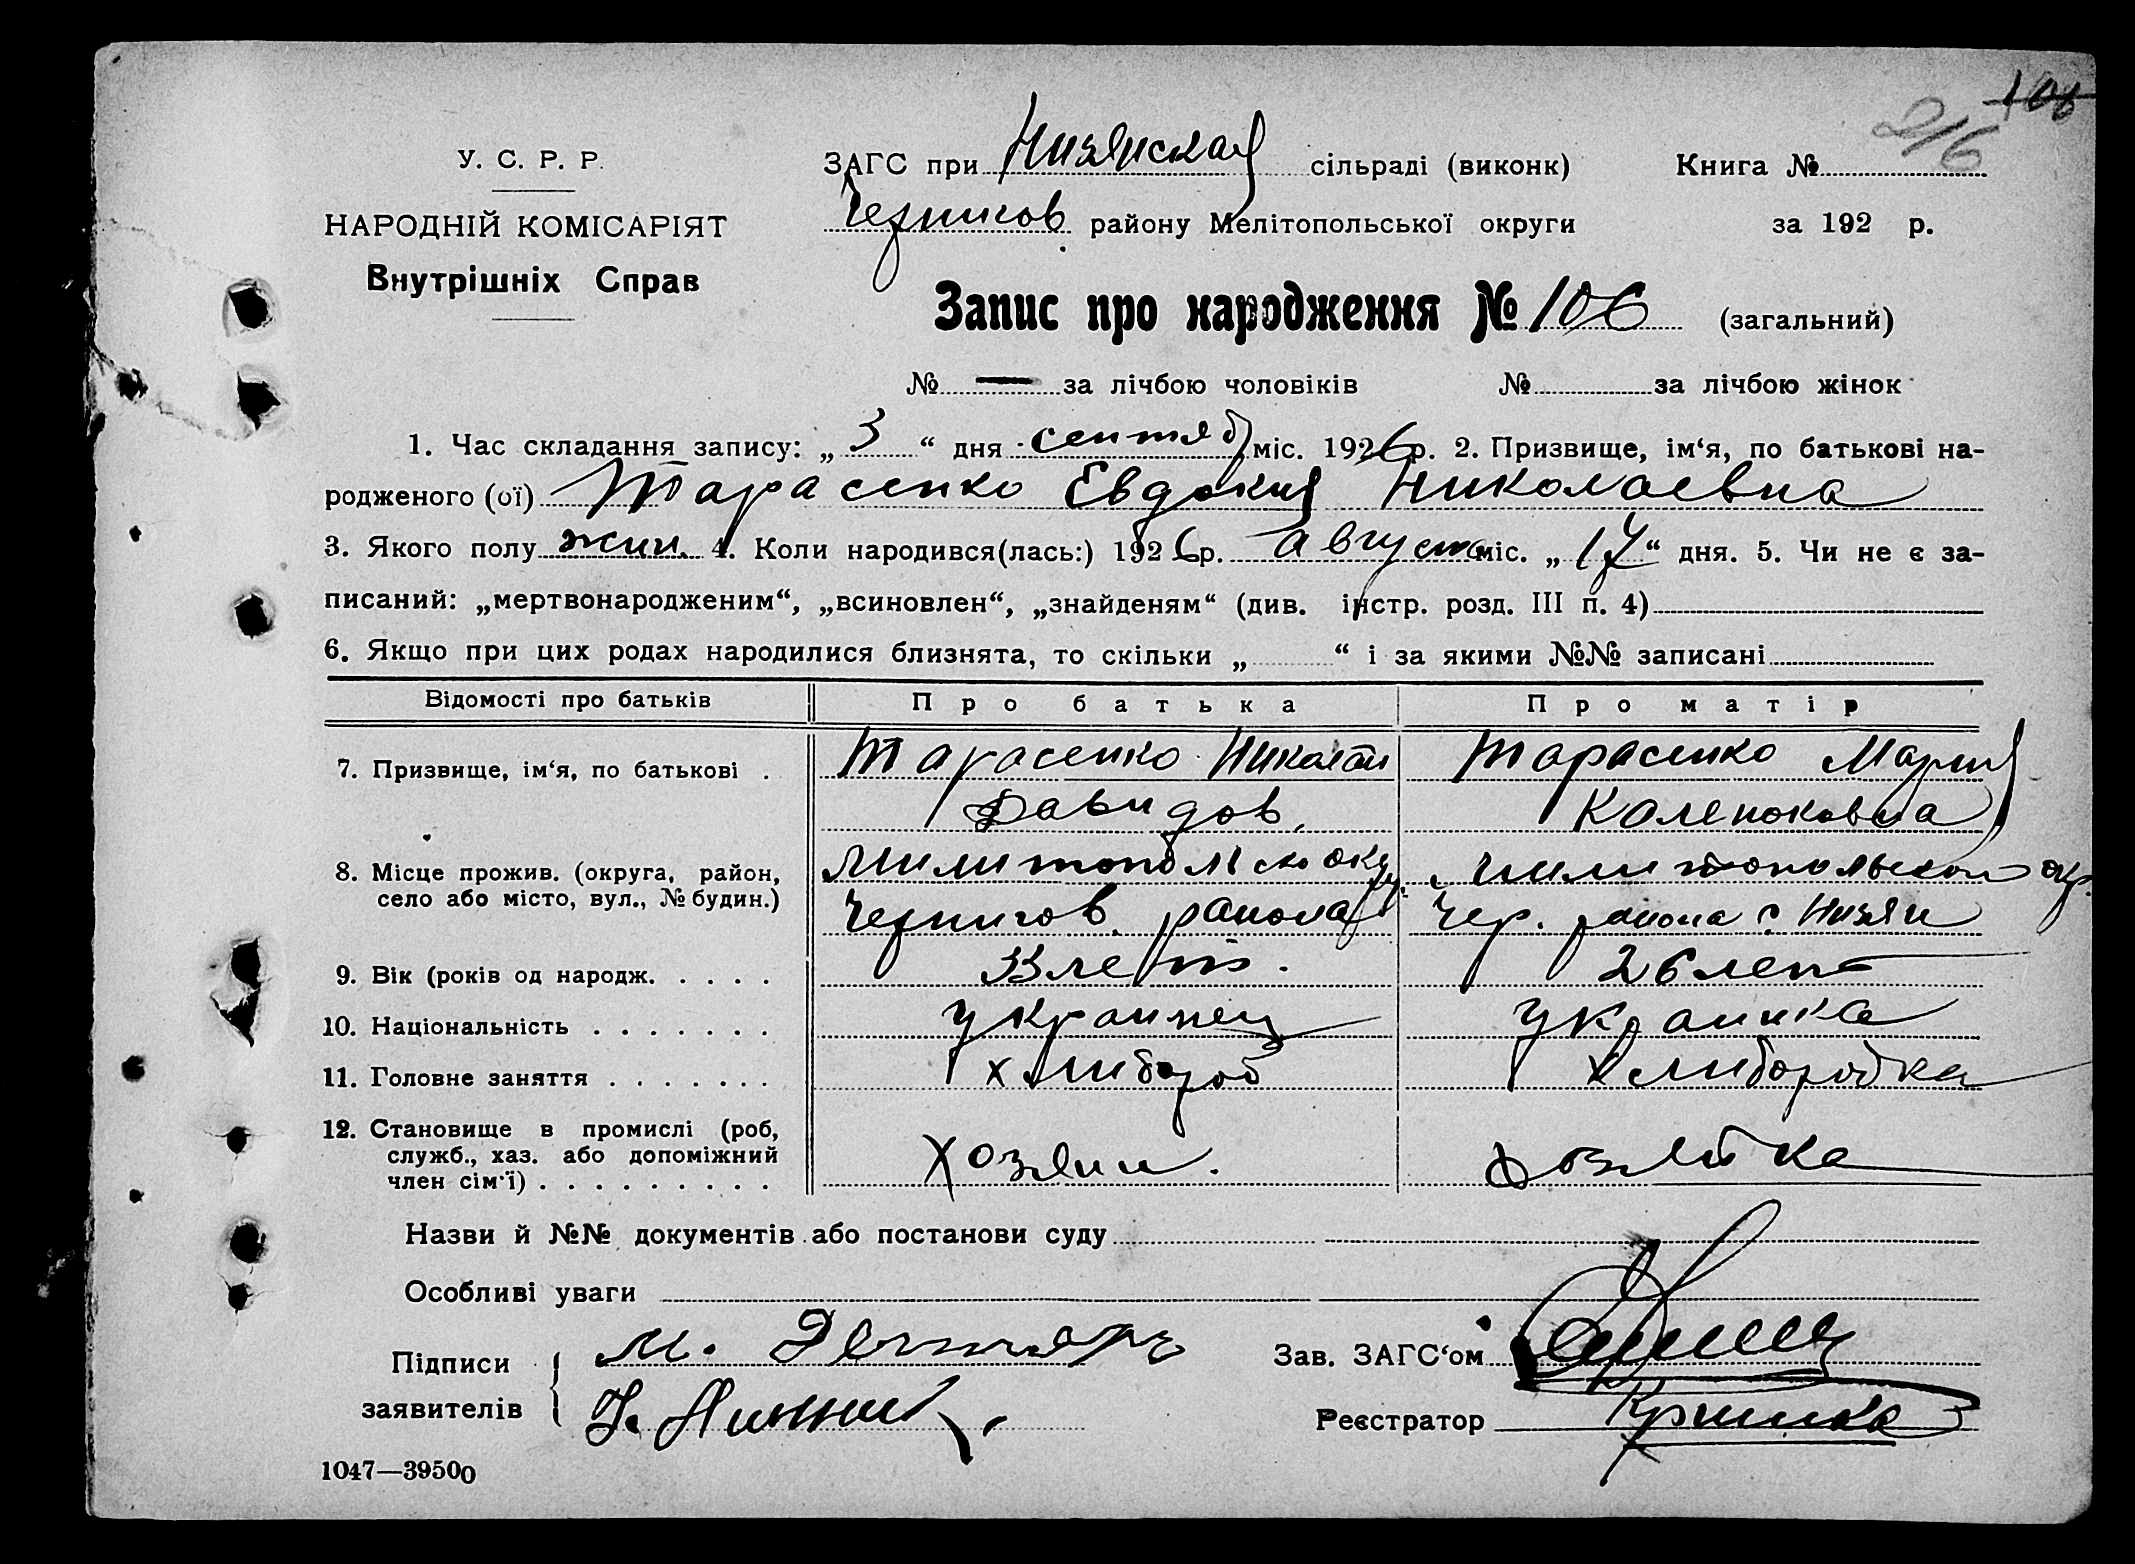 106
216
У. С. Р. Р.
ЗАГС при Низянская сільраді (виконк) Книга №
НАРОДНІЙ КОМІСАРІЯТ
Чернигов районy Мелітопольської округи за 192 р.
Внутрішніх Справ
Запис про народження № 106 (загальний)
№ — за лічбою чоловіків № за лічбою жінок
1. Час складання запису: „ 3 “ дня сентяб міс. 1926 р. 2. Призвище, ім‘я, по батькові на-
родженого (ої) Тарасенко Евдокия Николаевна
3. Якого полу жин. 4. Коли народився(лась:) 1926 р. августа міс. „ 17 “ дня. 5. Чи не є за-
писаний: „мертвонародженим“, „всиновлен“, „знайденям“ (див. інстр. розд. III п. 4)
6. Якщо при цих родах народилися близнята, то скільки „ “ і за якими №№ записані
Відомості про батьків Про батька Про матір
7. Призвище, ім‘я, по батькові . Тарасенко Николай Тарасенко Мария
Давидов.
8. Місце прожив. (округа, район, Милитопольско окр. милитопольской окр.
село або місто, вул., № будин.) Чернигов. района Чер. района с. Низян
9. Вік (років од народж. . . . . 33 лет. 26 лет
10. Національність . . . . . . . украинец украинка
11. Головне заняття . . . . . . . хлибороб хлиборобка
12. Становище в промислі (роб,
служб., хаз. або допоміжний хозяин. хозяйка
член сім‘ї) . . . . . . . . .
Назви й №№ документів або постанови суду
Особливі уваги
Підписи М.
Зав. ЗАГС‘ом
заявителів
Реєстратор
1047—39500